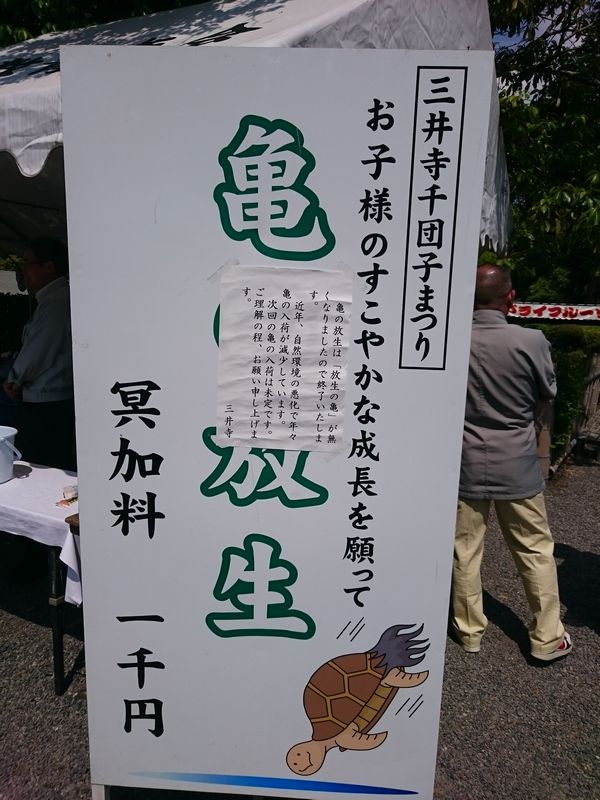 三井寺千団子まつり
お子様のすこやかな成長を願って
亀の放生
亀の放生は「放生の亀」が無
くなりましたので終了いたしま
す。
近年、自然環境の悪化で年々
亀の入荷が減少しています。
次回の亀の入荷は未定です。
ご理解の程、お願い申し上げま
す。
三井寺
冥加料 一千円